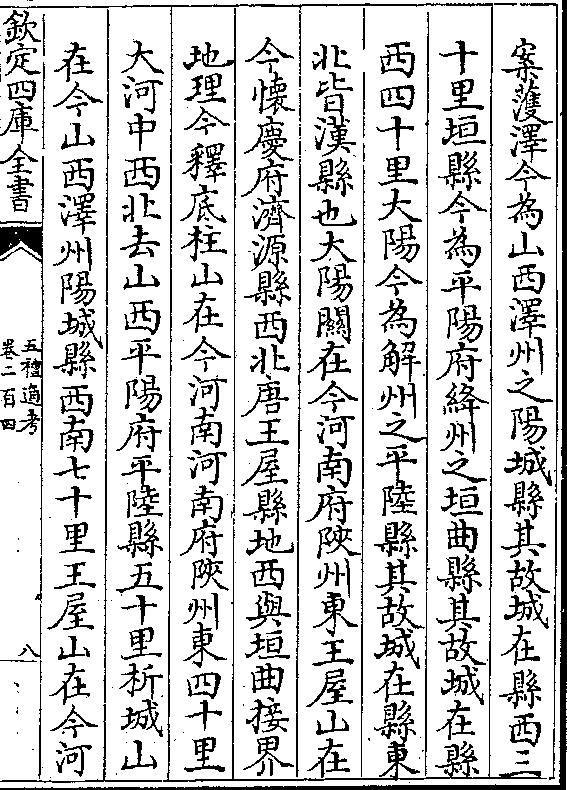 案蒦澤今為山西澤州之陽城縣其故城在縣西三
十里垣縣今為平陽府絳州之垣曲縣其故城在縣
西四十里大陽今為解州之平陸縣其故城在縣東
北皆漢縣也大陽關在今河南府陝州東王屋山在
今懷慶府濟源縣西北唐王屋縣地西與垣曲接界
地理今釋底柱山在今河南河南府陝州東四十里
大河中西北去山西平陽府平陸縣五十里析城山
在今山西澤州陽城縣西南七十里王屋山在今河
欽定四庫全書
五禮通考
卷二百四
八